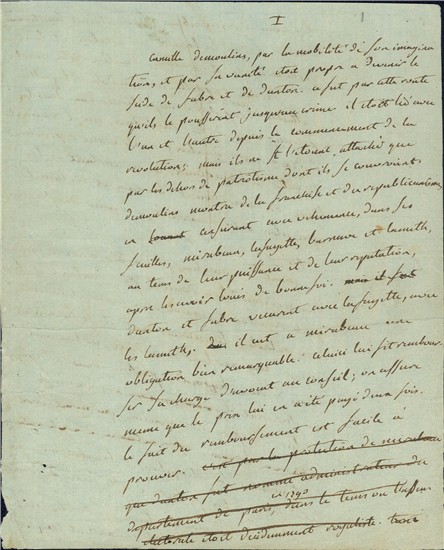 I
camille desmoulins, par la mobilité de son imagina
tion, et par sa vanité etoit propre a devenir le
seide de fabre et de danton. ce fut par cette route
qu'ils le pousserent jusqu'au crime. il etoit lié avec
l'un et l'autre depuis le commencement de la
revolution; mais ils ne se l'etoient attaché que
par les dehors du patriotisme dont ils se couvroient
desmoulins montra de la franchise et du republicanisme
en censurant avec vehemence, dans ses
feuilles, mirabeau, lafayette, barnave et lameth,
au tems de leur puissance et de leur reputation,
apres les avoir loués de bonne foi.
danton et fabre vecurent avec lafayette, avec
les lameth; il eut a mirabeau une
obligation bien remarquable. celui-ci fit rembour
ser sa charge d'avocat au conseil; on assure
meme que le prix lui en a été payé deux fois.
le fait du remboursement est facile à
prouver. c'est par la protection de mirabeau
que danton fut nommé administrateur du
departement de paris, en 1790, dans le tems ou l'assem
electorale etoit decidemment royaliste.